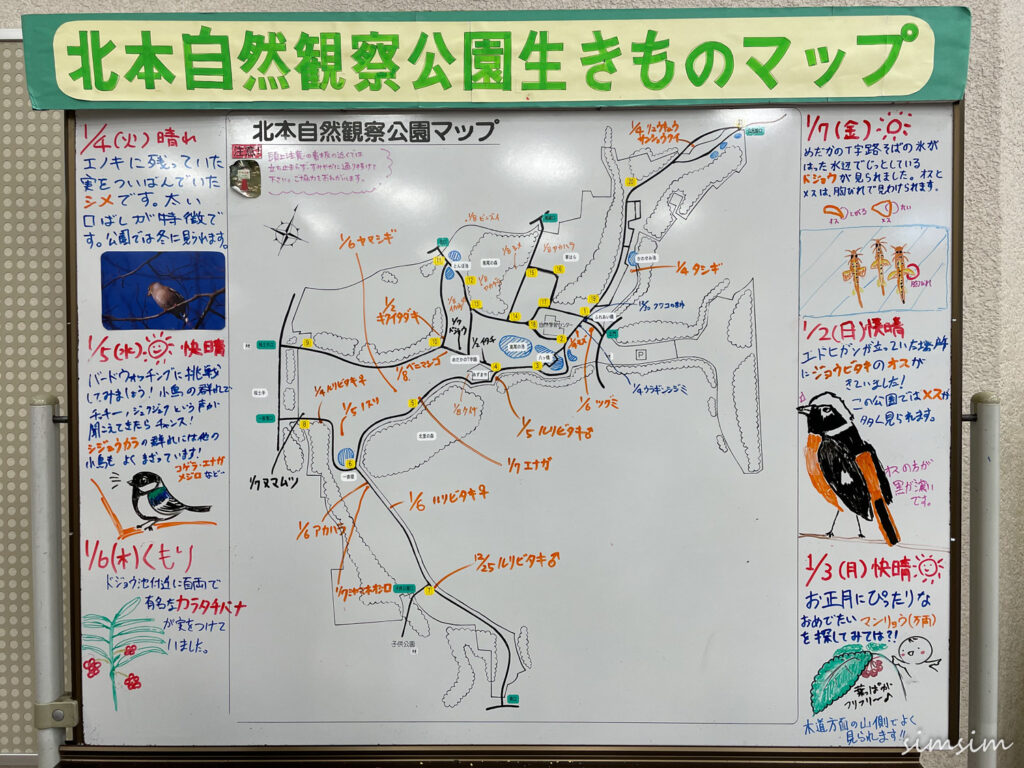 北本自然観察公園生きものマップ
1/4(火) 晴れ
エノキに残っていた
実をついばんでいた
シメです。太い
口ばしが特徴で
す。公園では冬に見られます。
1/5(水) 快晴
バードウォッチングに挑戦
してみましょう! 小鳥の群れで
聞こえてきたらチャンス!
シジュウカラの群れには他の
小鳥もよくまざっています!
コゲラ・エナガ
メジロなど
1/6(木)くもり
ドジョウ池付近に百両で
有名なカラタチバナ
が実をつけて
いました。
北本自然観察公園マップ
頭上注意の看板の近くでは
立ち止まらず、すみやかに通り抜けて
下さい。ご協力をお願いします。
1/4 リュウキュウ
サンショウクイ
1/6 ヤマシギ
1/8 ビンズイ
1/8 シメ
1/8 アカハラ
1/4 タシギ
1/2
キクイタダキ
1/7
ドジョウ
1/2 イタチ
1/8 ベニマシコ
1/4 ルリビタキ♀
1/5 ノスリ
1/4 ウラギンシジミ
1/6 ツグミ
1/5 ルリビタキ♂
1/7 エナガ
1/7 ヌマムツ
1/6 ルリビタキ♀
1/6 アカハラ
12/25 ルリビタキ♂
とんぼ池
高尾の森
自然学習センター
ふれあい橋
高尾の池
八ッ橋
めだかのT字路
あずまや
北里の森
一夜堤
桜土手
子供公園
P
1/7(金)
めだかのT字路そばの氷が
はった水辺でじっとしている
ドジョウが見られました。オスと
メスは、胸びれで見わけられます。
オス
とがる
メス
丸い
胸びれ
1/2(日)快晴
エドヒガンが立っていた場所
にジョウビタキのオスが
きていました!
この公園ではメスが
多く見られます。
オスの方が
黒が濃い
です。
1/3(月)快晴
お正月にぴったりな
おめでたいマンリョウ(万両)
を探してみては?!
葉っぱが
フリフリ〜♪
木道方面の山側でよく
見られます!!
simsim